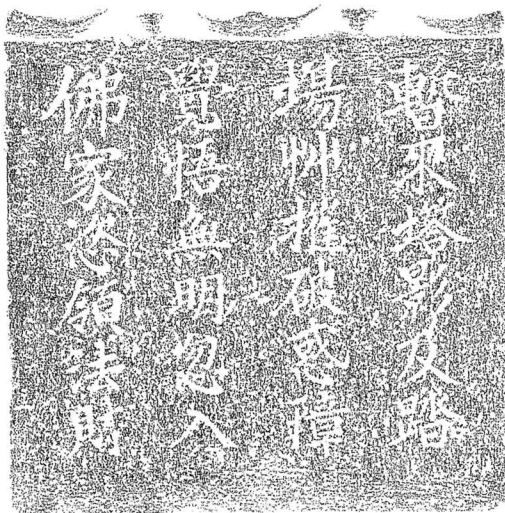 暫來塔影及踏
場艸摧破惑障
覺悟無明忽入
佛家恣領法財